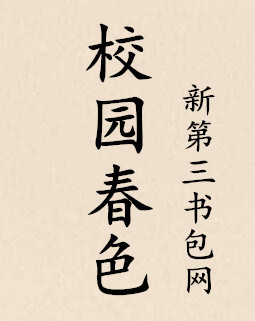 校园春色
新第三书包网